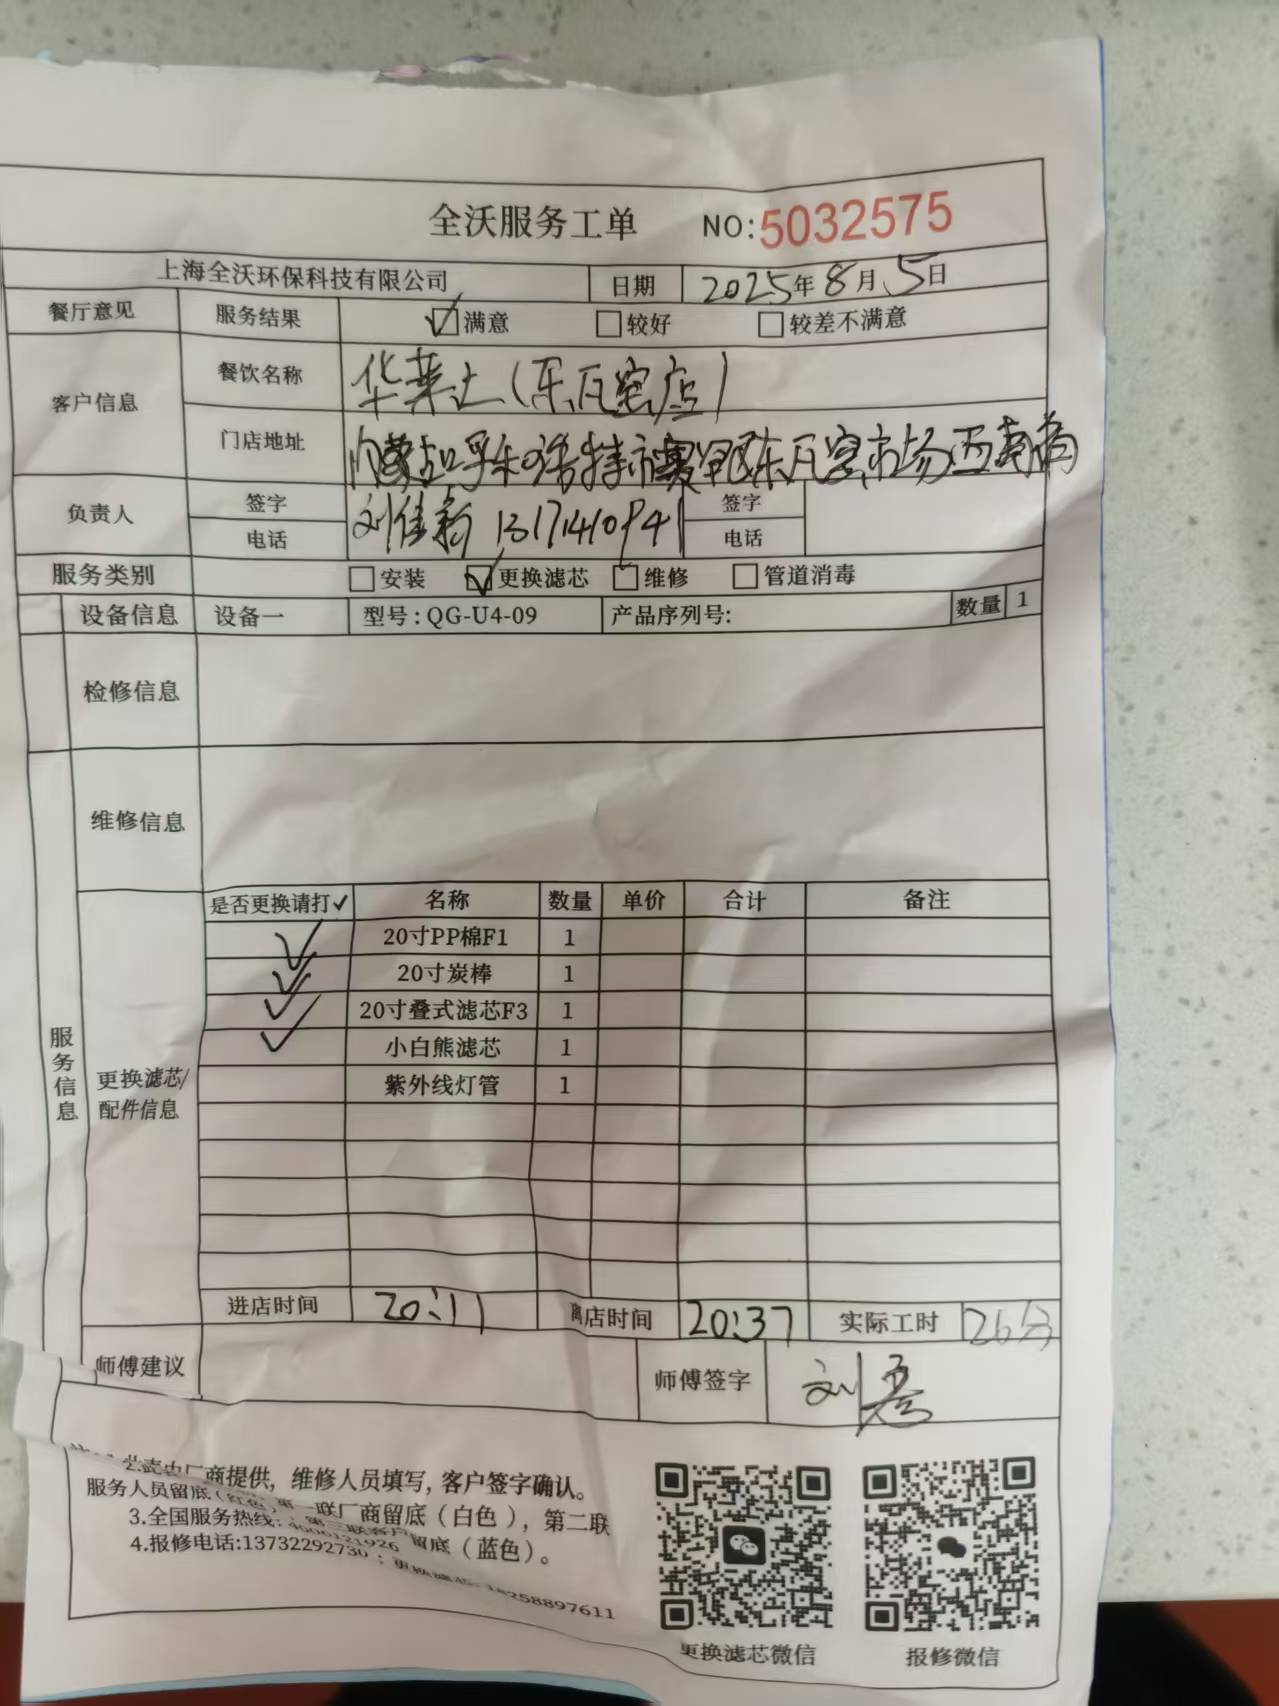 全沃服务工单 NO:5032575
上海全沃环保科技有限公司 日期 2025年8月5日
餐厅意见 服务结果 ☑满意 □较好 □较差不满意
客户信息 餐饮名称 华莱士(东瓦窑店)
门店地址 内蒙古呼和浩特市赛罕区东瓦窑市场西南角
负责人 签字 刘佳新 签字
电话 13171410941 电话
服务类别 □安装 ☑更换滤芯 □维修 □管道消毒
设备信息 设备一 型号:QG-U4-09 产品序列号: 数量 1
检修信息
维修信息
服务信息
更换滤芯/配件信息
是否更换请打✓ 名称 数量 单价 合计 备注
✓ 20寸PP棉F1 1
✓ 20寸炭棒 1
✓ 20寸叠式滤芯F3 1
✓ 小白熊滤芯 1
紫外线灯管 1
进店时间 20:11 离店时间 20:37 实际工时 26分
师傅建议 师傅签字 刘
厂商提供,维修人员填写,客户签字确认。
服务人员留底(红色) 第一联厂商留底(白色),第二联
3.全国服务热线:4000121926 第三联客户留底(蓝色)。
4.报修电话:13732292730;更换滤芯:18258897611
更换滤芯微信 报修微信